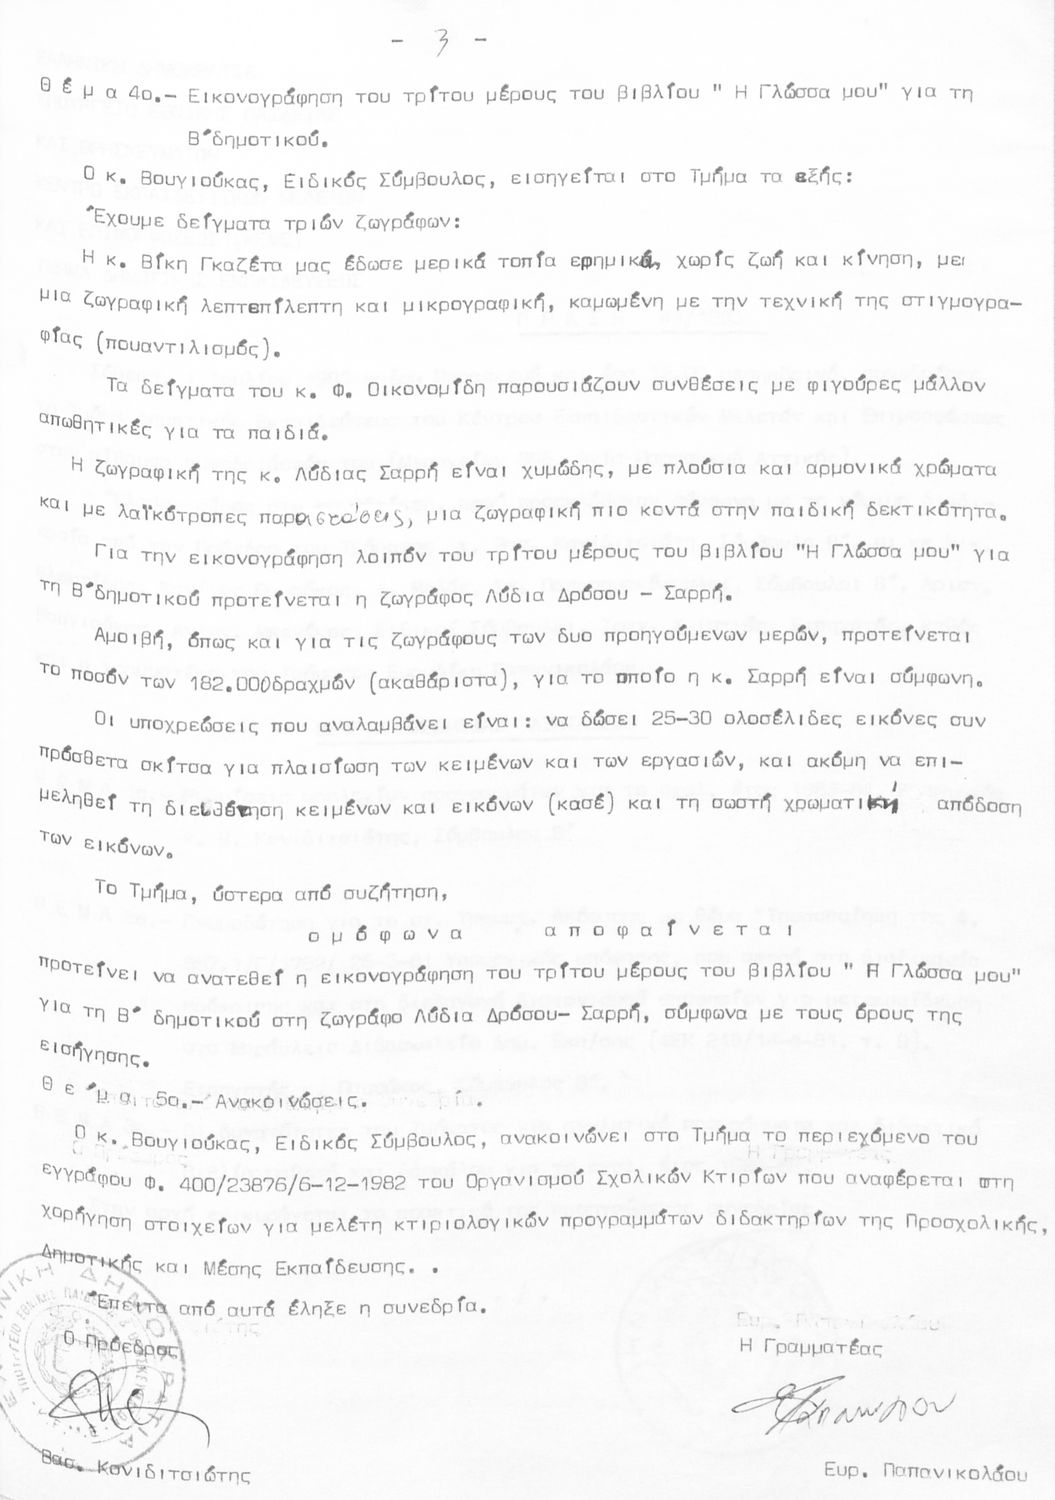 - 3 -
Θ έ μ α 4ο.- Εικονογράφηση του τρίτου μέρους του βιβλίου " Η Γλώσσα μου" για τη
Β΄δημοτικού.
Ο κ. Βουγιούκας, Ειδικός Σύμβουλος, εισηγείται στο Τμήμα τα εξής:
Έχουμε δείγματα τριών ζωγράφων:
Η κ. Βίκη Γκαζέτα μας έδωσε μερικά τοπία ερημικά, χωρίς ζωή και κίνηση, με
μια ζωγραφική λεπτεπίλεπτη και μικρογραφική, καμωμένη με την τεχνική της στιγμογρα-
φίας (πουαντιλισμός).
Τα δείγματα του κ. Φ. Οικονομίδη παρουσιάζουν συνθέσεις με φιγούρες μάλλον
απωθητικές για τα παιδιά.
Η ζωγραφική της κ. Λύδιας Σαρρή είναι χυμώδης, με πλούσια και αρμονικά χρώματα
και με λαϊκότροπες παραστάσεις, μια ζωγραφική πιο κοντά στην παιδική δεκτικότητα.
Για την εικονογράφηση λοιπόν του τρίτου μέρους του βιβλίου "Η Γλώσσα μου" για
τη Β΄δημοτικού προτείνεται η ζωγράφος Λύδια Δρόσου - Σαρρή.
Αμοιβή, όπως και για τις ζωγράφους των δυο προηγούμενων μερών, προτείνεται
το ποσόν των 182.000δραχμών (ακαθάριστα), για το οποίο η κ. Σαρρή είναι σύμφωνη.
Οι υποχρεώσεις που αναλαμβάνει είναι: να δώσει 25-30 ολοσέλιδες εικόνες συν
πρόσθετα σκίτσα για πλαισίωση των κειμένων και των εργασιών, και ακόμη να επι-
μεληθεί τη διευθέτηση κειμένων και εικόνων (κασέ) και τη σωστή χρωματική απόδοση
των εικόνων.
Το Τμήμα, ύστερα από συζήτηση,
ο μ ό φ ω ν α   α π ο φ α ί ν ε τ α ι
προτείνει να ανατεθεί η εικονογράφηση του τρίτου μέρους του βιβλίου " Η Γλώσσα μου"
για τη Β΄ δημοτικού στη ζωγράφο Λύδια Δρόσου- Σαρρή, σύμφωνα με τους όρους της
εισήγησης.
Θ έ μ α 5ο.- Ανακοινώσεις.
Ο κ. Βουγιούκας, Ειδικός Σύμβουλος, ανακοινώνει στο Τμήμα το περιεχόμενο του
εγγράφου Φ. 400/23876/6-12-1982 του Οργανισμού Σχολικών Κτιρίων που αναφέρεται στη
χορήγηση στοιχείων για μελέτη κτιριολογικών προγραμμάτων διδακτηρίων της Προσχολικής,
Δημοτικής και Μέσης Εκπαίδευσης. .
Έπειτα από αυτά έληξε η συνεδρία.
Ο Πρόεδρος
Η Γραμματέας
Βασ. Κονιδιτσιώτης
Ευρ. Παπανικολάου